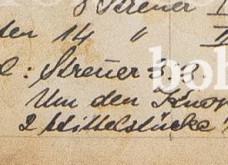 Streuer
den 14 "
: Streuer 3.3.
Um den Knop
2 Mittelstücke